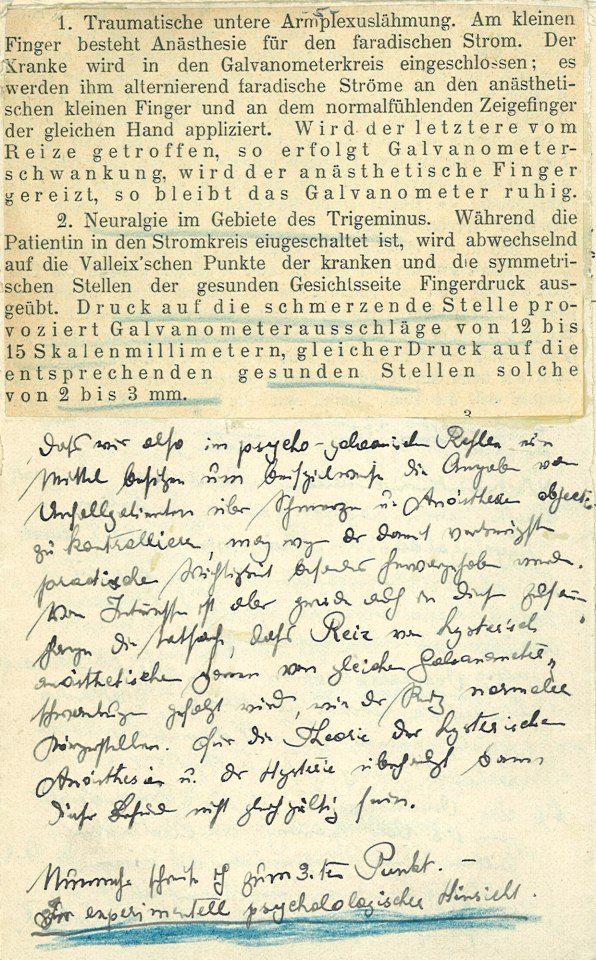 -5-
1. Traumatische untere Armplexuslähmung. Am kleinen
Finger besteht Anästhesie für den faradischen Strom. Der
Kranke wird in den Galvanometerkreis eingeschlossen; es
werden ihm alternierend faradische Ströme an den anästheti-
schen kleinen Finger und an dem normalfühlenden Zeigefinger
der gleichen Hand appliziert. Wird der letztere vom
Reize getroffen, so erfolgt Galvanometer-
schwankung, wird der anästhetische Finger
gereizt, so bleibt das Galvanometer ruhig.
2. Neuralgie im Gebiete des Trigeminus. Während die
Patientin in den Stromkreis eiugeschaltet ist, wird abwechselnd
auf die Valleix'schen Punkte der kranken und die symmetri-
schen Stellen der gesunden Gesichtsseite Fingerdruck aus-
geübt. Druck auf die schmerzende Stelle pro-
voziert Galvanometerausschläge von 12 bis
15 Skalenmillimetern, gleicher Druck auf die
entsprechenden gesunden Stellen solche
von 2 bis 3 mm.
3
Dass wir also im psycho-galvanischen Reflex ein
Mittel besitzen um beispielweise die Angaben von
Unfallpatienten über Schmerzen u. Anästhesie objectiv
zu kontrollieren, mag wegen der damit verknüpften
praktischen Wichtigkeit besonders hervorgehoben werden.
Von Interesse ist aber gerade auch in diesem Zusam
hange die Tatsache, dass Reiz von hysterisch
anästhetischen von gleichen Galvanometer
schwankungen gefolgt wird, wie der Reiz normaler
Körperstellen. Für die Theorie der hysterischen
Anästhesien u. der Hysterie überhaupt kann
dieser Befund nicht gleichgültig sein.
Nunmehr schreite ich zum 3.ten Punkt. -
In experimentell psychologischer Hinsicht.